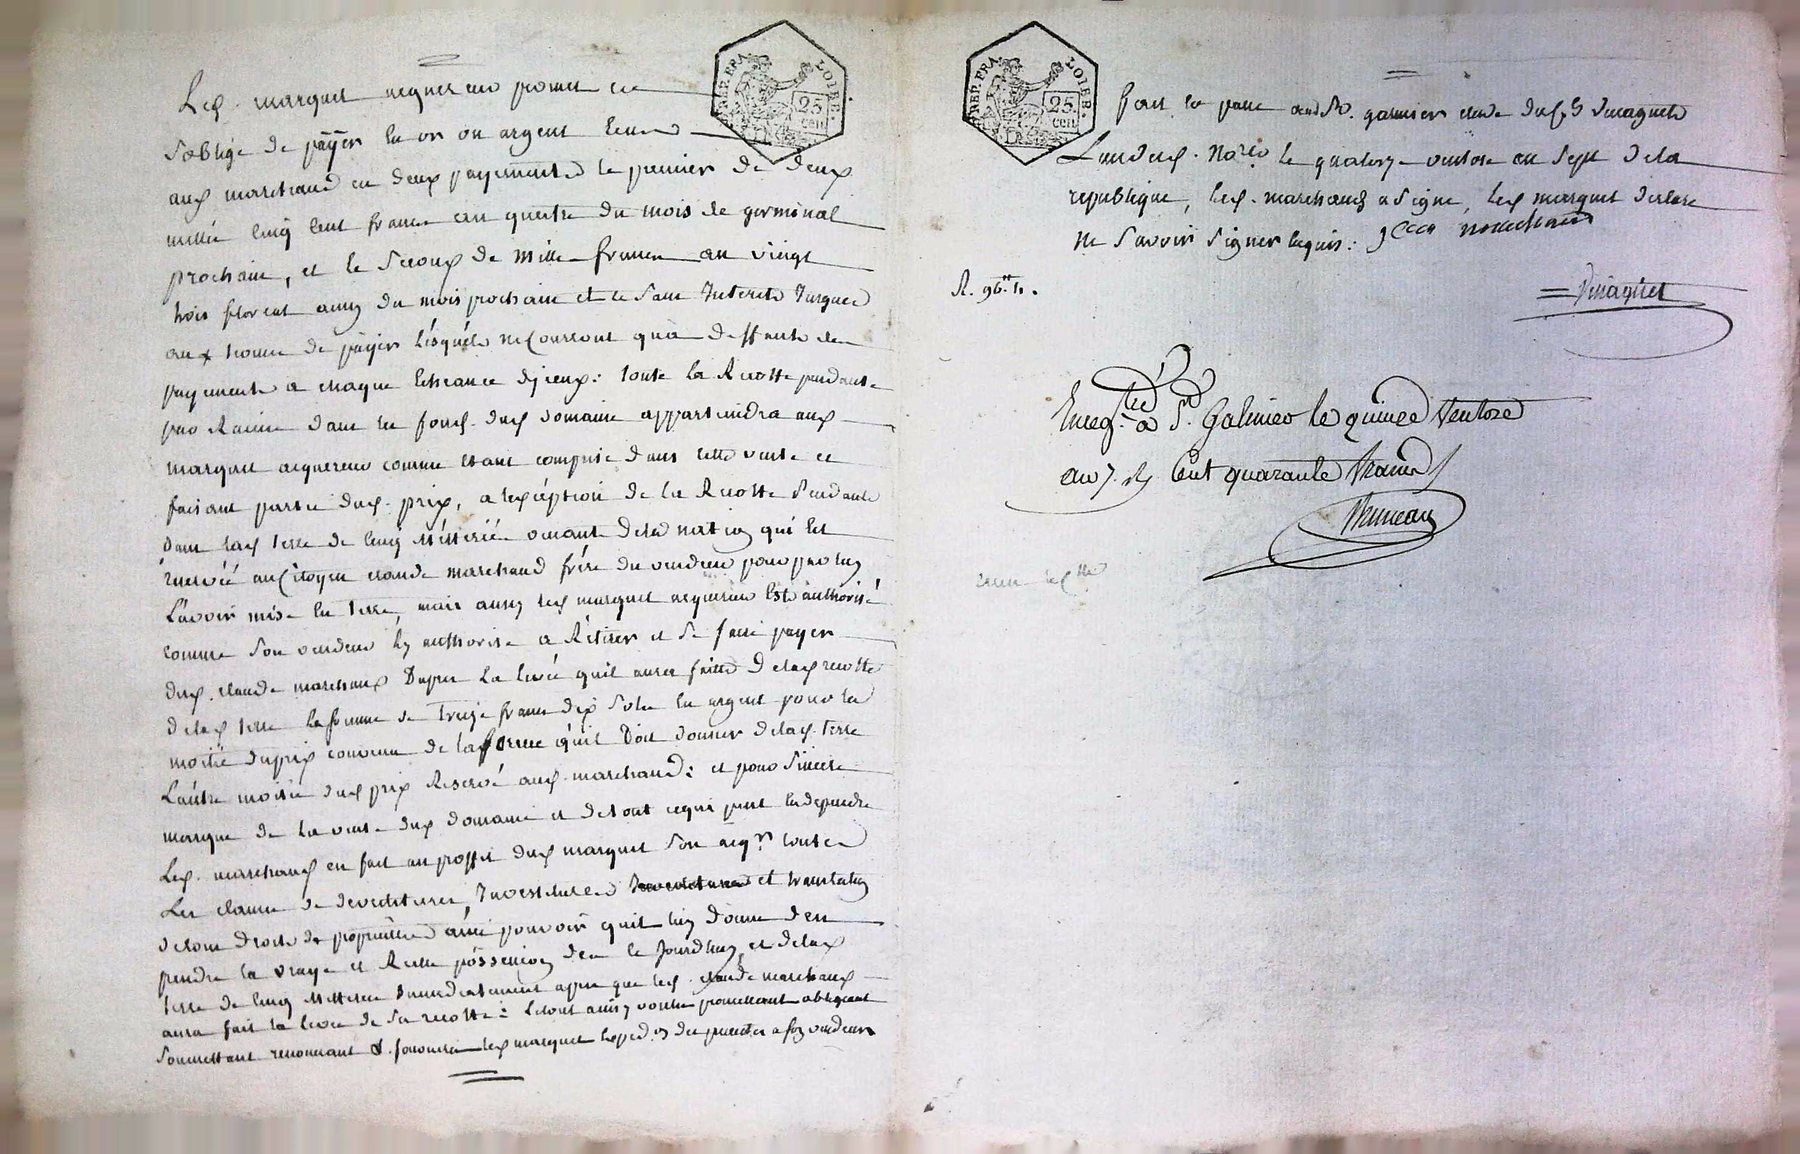 REP. FRA. LOIRE.
25. cen
Led. marquet acquereur promet et
s'oblige de päyer en or ou argent
aud marchand en deux payements le premier de deux
mille cinq cent francs au quatre du mois de germinal
prochain, et le second de mille francs au vingt
trois floreal aussy du mois prochain et ce sans Interets Jusques
aux termes de päyer lésquéls ne Courront qu'a deffauts de
payements a chaque Echeance d'iceux : toute la Recolte pendante
par Racine dans les fonds dud domaine appartiendra aud
marquet acquereur comme etant comprise dans cette vente et
faisant partie dud. prix, a lexception de la Recolte Pendante
dans lad terre de cinq Métérée venant de la nation qui est
reservée au Citoyen claude marchand frére du vendeur pour
L'avoir mise En terre, mais aussy led marquet acquereur Est authorisé
comme son vendeur ly authorise a Rétirer et se faire payer
dud. claude marchand Dapres La levée quil aura faitte de lad recolte
de lad terre la somme de Treize francs dix sols en argent pour la
moitié du prix convenu de la ferme qu'il Doit donner de lad. terre
L'autre moitié dud prix Reservé aud marchand : et pour sincere
marque de la vente dud domaine et de tout ce qui peut En dependre
Led. marchand en fait au proffit dud marquet son acqr. toutes
Les clauses de devestitures, Investitures et translation
de tous droits de propriétés avec pouvoir quil luy donne d'en
prendre la vraye et Réelle possession des ce Jourdhuy, et de lad
terre de cinq Metteree Immediatement apres que led. claude marchand
aura fait la levée de sa recolte : Letout ainsy voulu promettant obligeant
soumettant renonceant &
REP. FRA. LOIRE.
25. cen
Fait et passé and St. garmier etude du cn. Vinagnet
L'un desd. Nores le quatorze ventose an Sept de la
republique, led. marchand a signe, led marquet declare
ne savoir signer enquis : marchand
R. 96.
Vinagnet
Enregtré a St. Galmier le quinze Ventose
an 7. R. Cent quarante francs
Bruneau